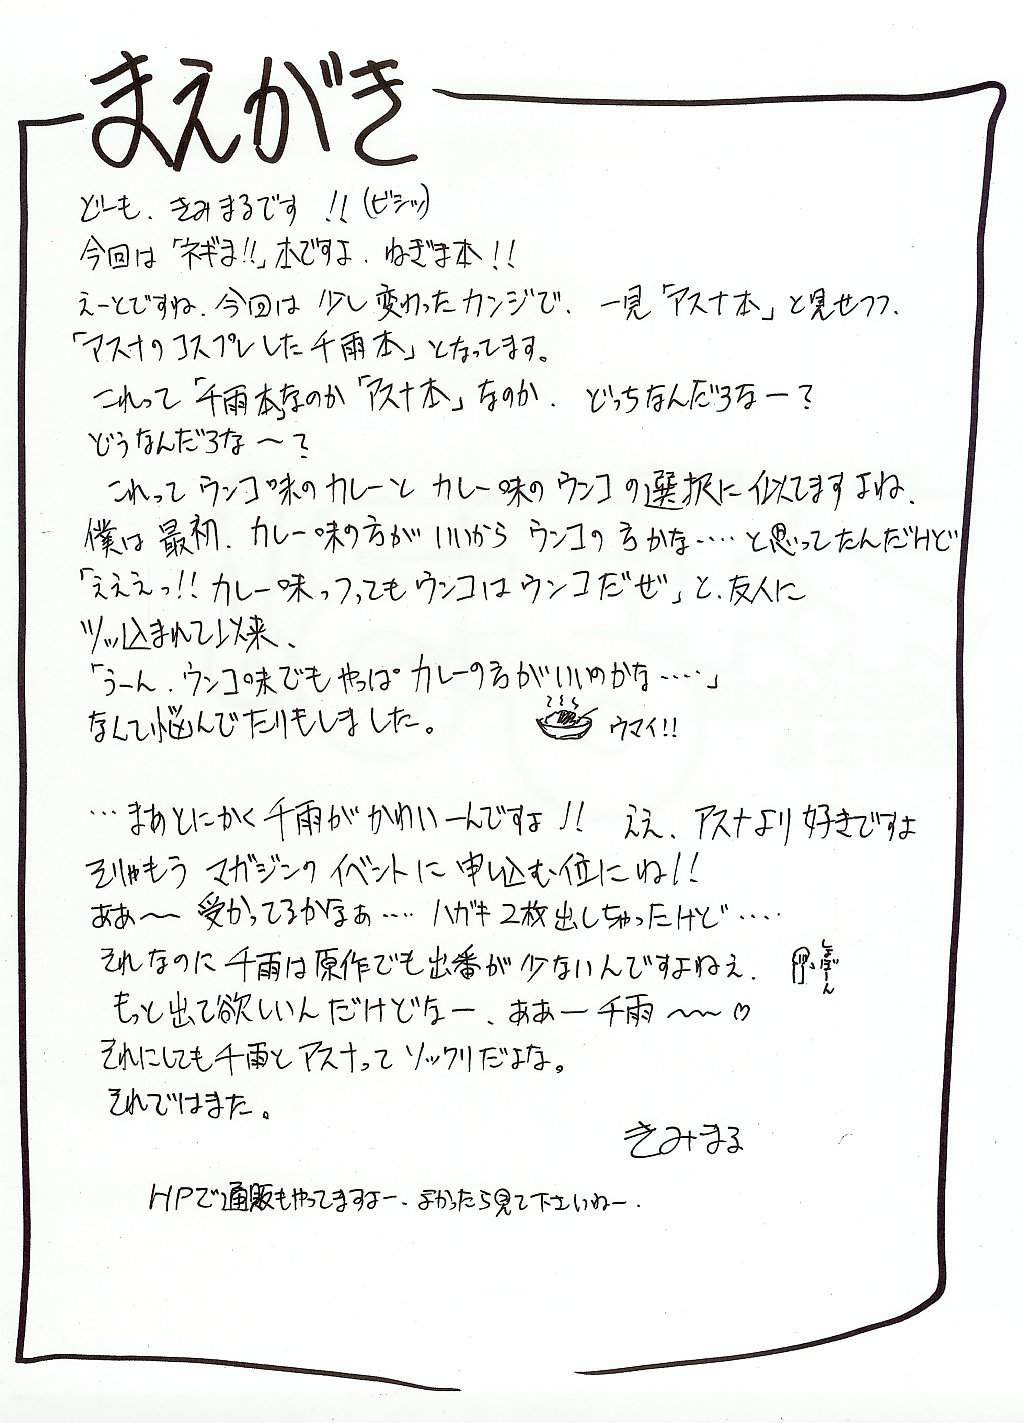 まえがき
どーも、きみまるです!!(ビシッ)
今回は「ネギま!!」本ですよ、ねぎま本!!
えーとですね、今回は少し変わったカンジで、一見「アスナ本」と見せつつ、
「アスナのコスプレした千雨本」となってます。
これって「千雨本」なのか「アスナ本」なのか、どっちなんだろなー?
どうなんだろな〜?
これってウンコ味のカレーとカレー味のウンコの選択に似てますよね、
僕は最初、カレー味の方がいいからウンコの方かな‥‥と思ってたんだけど
「えええっ!!カレー味っつってもウンコはウンコだぜ」と、友人に
ツッ込まれて以来、
「うーん、ウンコ味でもやっぱカレーの方がいいのかな‥‥」
なんて悩んでたりもしました。
ウマイ!!
…まあとにかく千雨がかわいーんですよ!!ええ、アスナより好きですよ
そりゃもうマガジンのイベントに申し込む位にね!!
ああ〜〜受かってるかなぁ‥‥ハガキ2枚出しちゃったけど‥‥
それなのに千雨は原作でも出番が少ないんですよねぇ、
しょぼーん
もっと出て欲しいんだけどなー、ああー千雨〜〜♡
それにしても千雨とアスナってソックリだよな。
それではまた。
きみまる
HPで通販もやってますよー、よかったら見て下さいねー、